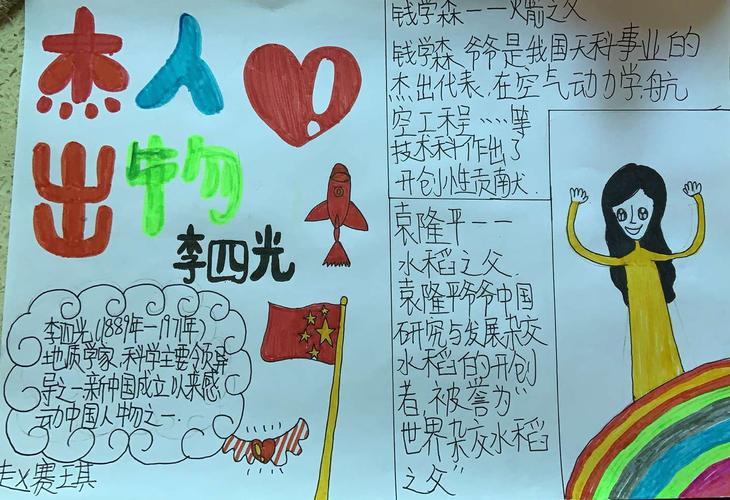 杰人
出物
李四光
李四光(1889年一1971年)
地质学家.科学主要领导
导之一.新中国成立以来感
动中国人物之一.
赵X赛琪
钱学森一一火箭之父
钱学森爷爷是我国天科事业的
杰出代表.在空气动力学.航
空工程……等
技术科作出了
开创小性贡献.
袁隆平一一
水稻之父.
袁隆平爷爷中国
研究与发展杂交
水稻的开创
者,被誉为“
世界杂交水稻
之父”